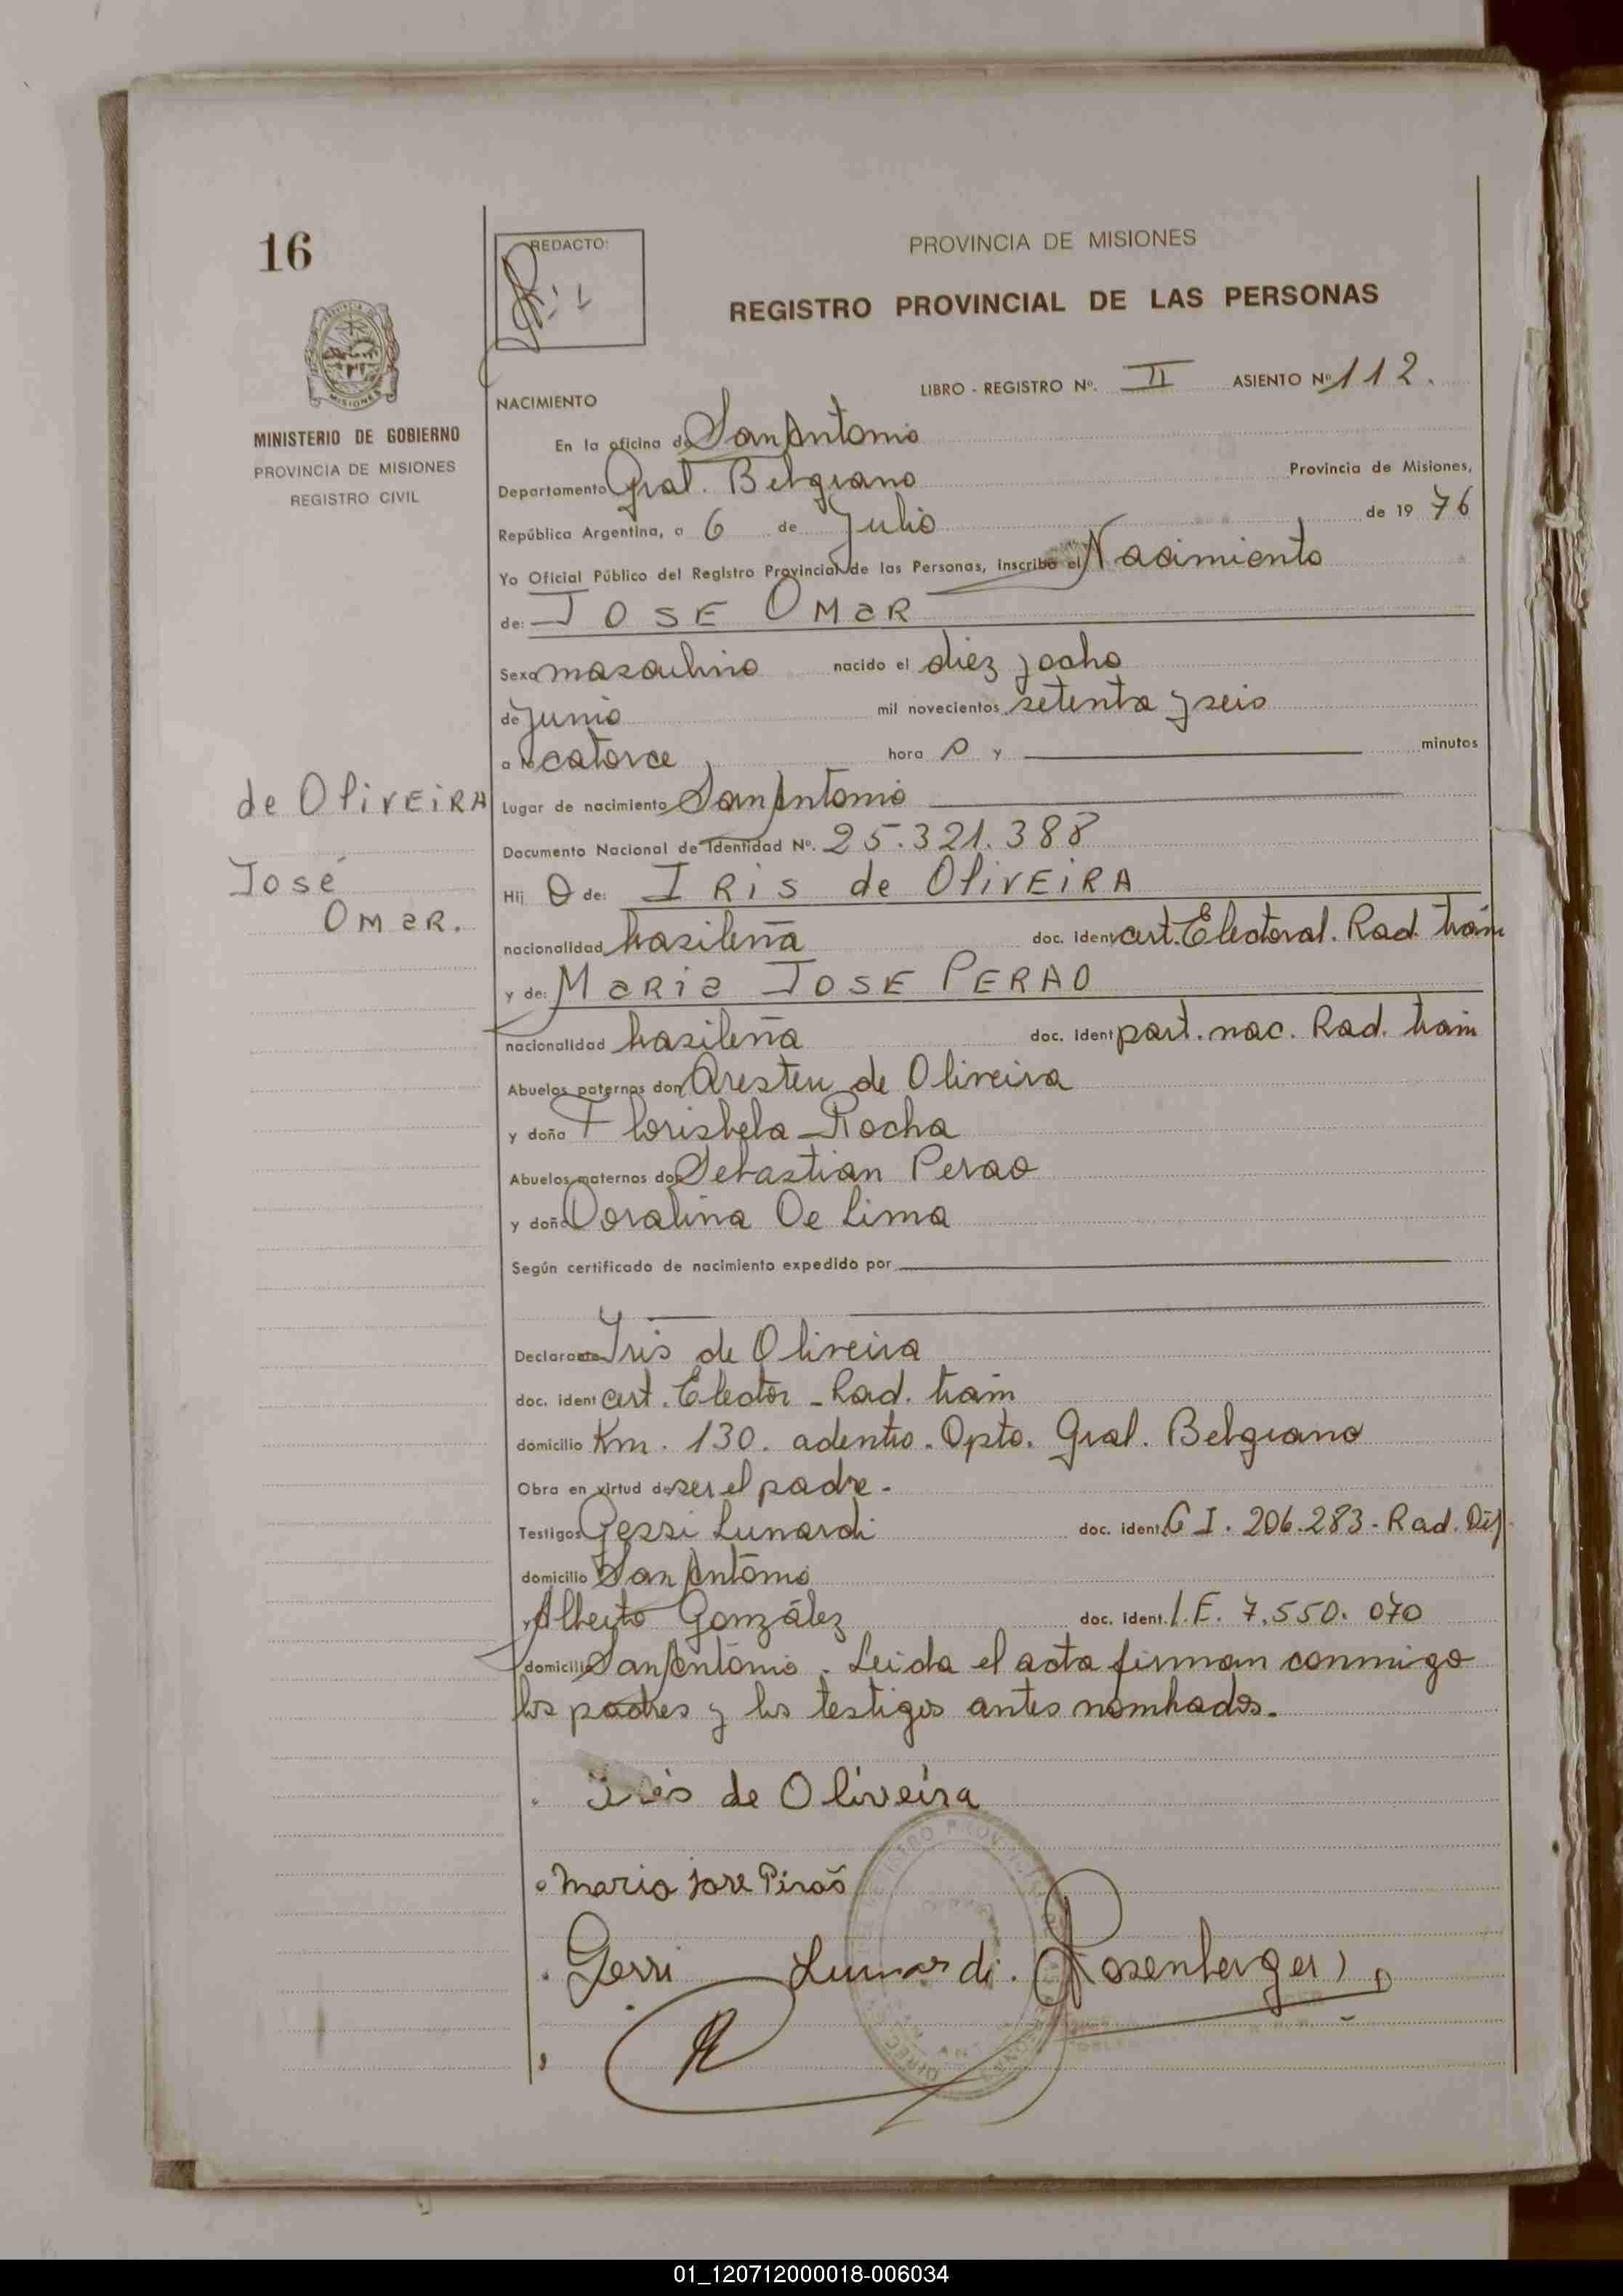 16
REDACTO:
PROVINCIA DE MISIONES
REGISTRO PROVINCIAL DE LAS PERSONAS
MISIONES
MINISTERIO DE GOBIERNO
PROVINCIA DE MISIONES
REGISTRO CIVIL
LIBRO - REGISTRO Nº. II ASIENTO Nº 112.
NACIMIENTO
En la oficina de San Antonio
Departamento Gral. Belgrano Provincia de Misiones,
República Argentina, a 6 de Julio de 1976
Yo Oficial Público del Registro Provincial de las Personas, inscribo el Nacimiento
de: JOSE OMAR
Sexo masculino nacido el diez y ocho
de junio mil novecientos setenta y seis
a la catorce hora s y minutos
de OLIVEIRA
José
OMAR.
Lugar de nacimiento San Antonio
Documento Nacional de Identidad Nº. 25.321.388
Hij o de: IRIS de OLIVEIRA
nacionalidad brasileña doc. ident cert. Electoral. Rad. trám
y de: MARIA JOSE PERAO
nacionalidad brasileña doc. ident part. nac. Rad. trám
Abuelos paternos don Aresteu de Oliveira
y doña Florisbela Rocha
Abuelos maternos don Sebastian Perao
y doña Doralina De Lima
Según certificado de nacimiento expedido por
Declarante Iris de Oliveira
doc. ident cert. Elector - Rad. trám
domicilio Km. 130. adentro. Dpto. Gral. Belgrano
Obra en virtud de ser el padre.
Testigos Gessi Lunardi doc. ident. C I. 206.283 - Rad. Def.
domicilio San Antonio
y Alberto González doc. ident. L.E. 7.550.070
domicilio San Antonio. Leida el acta firman conmigo
los padres y los testigos antes nombrados.
Iris de Oliveira
Maria Jose Piraõ
Gessi Lunardi. Rosenberger
01_120712000018-006034